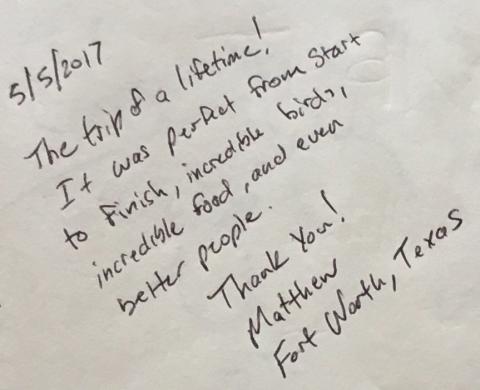 5/5/2017
The trip of a lifetime!
It was perfect from start
to finish, incredible birds,
incredible food, and even
better people.
Thank You!
Matthew
Fort Worth, Texas